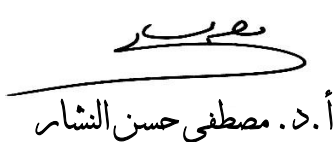 أ.د. مصطفى حسن النشار